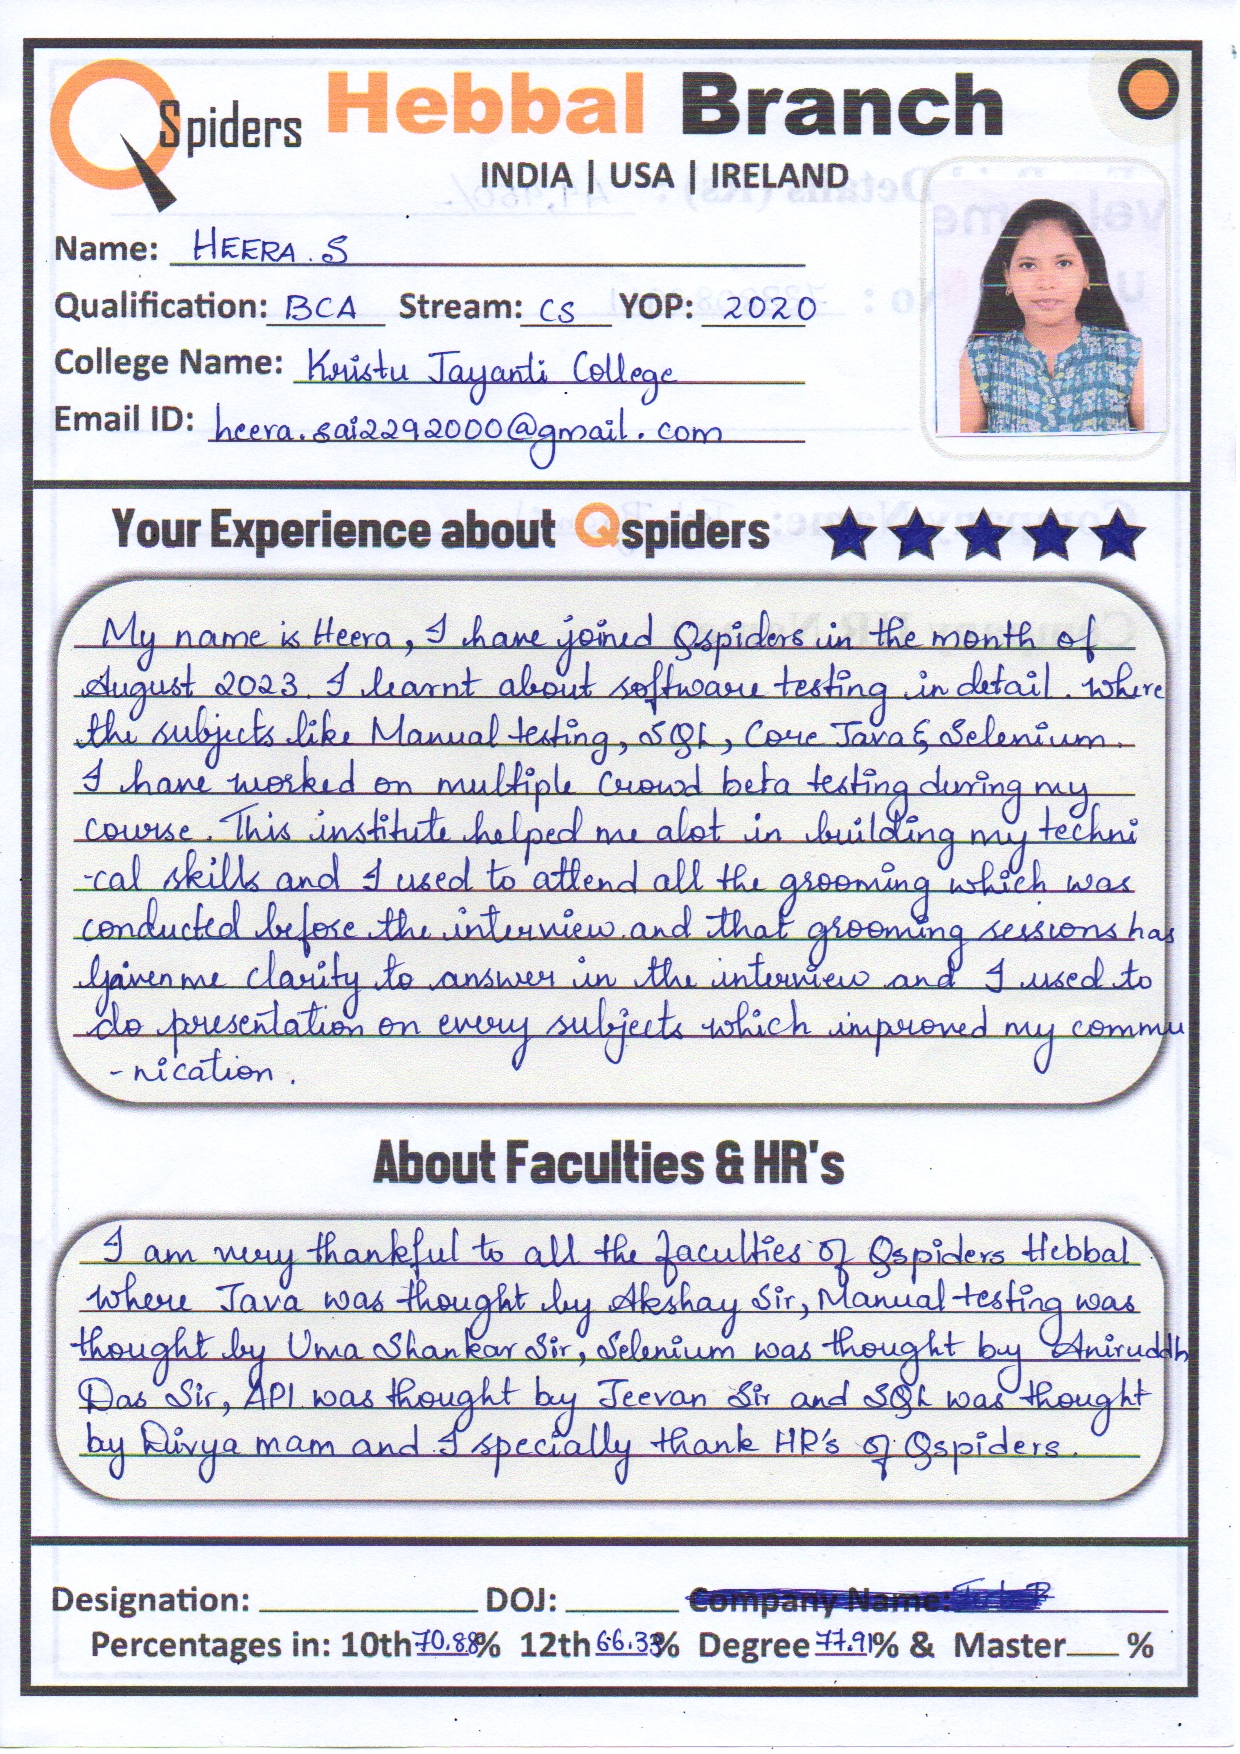 QSpiders Hebbal Branch
INDIA | USA | IRELAND
Name: HEERA.S
Qualification: BCA Stream: CS YOP: 2020
College Name: Kristu Jayanti College
Email ID: heera.sai2292000@gmail.com
Your Experience about Qspiders
My name is Heera, I have joined Qspiders in the month of
August 2023. I learnt about software testing in detail. Where
the subjects like Manual testing, SQL, Core Java & Selenium.
I have worked on multiple Crowd beta testing during my
course. This institute helped me alot in building my techni
-cal skills and I used to attend all the grooming which was
conducted before the interview and that grooming sessions has
given me clarity to answer in the interview and I used to
do presentation on every subjects which improved my commu
-nication.
About Faculties & HR's
I am very thankful to all the faculties of Qspiders Hebbal
where Java was thought by Akshay Sir, Manual testing was
thought by Uma Shankar Sir, Selenium was thought by Aniruddh
Das Sir, API was thought by Jeevan Sir and SQL was thought
by Divya mam and I specially thank HR's of Qspiders.
Designation: DOJ: Company Name:
Percentages in: 10th 70.88% 12th 66.33% Degree 77.91% & Master %